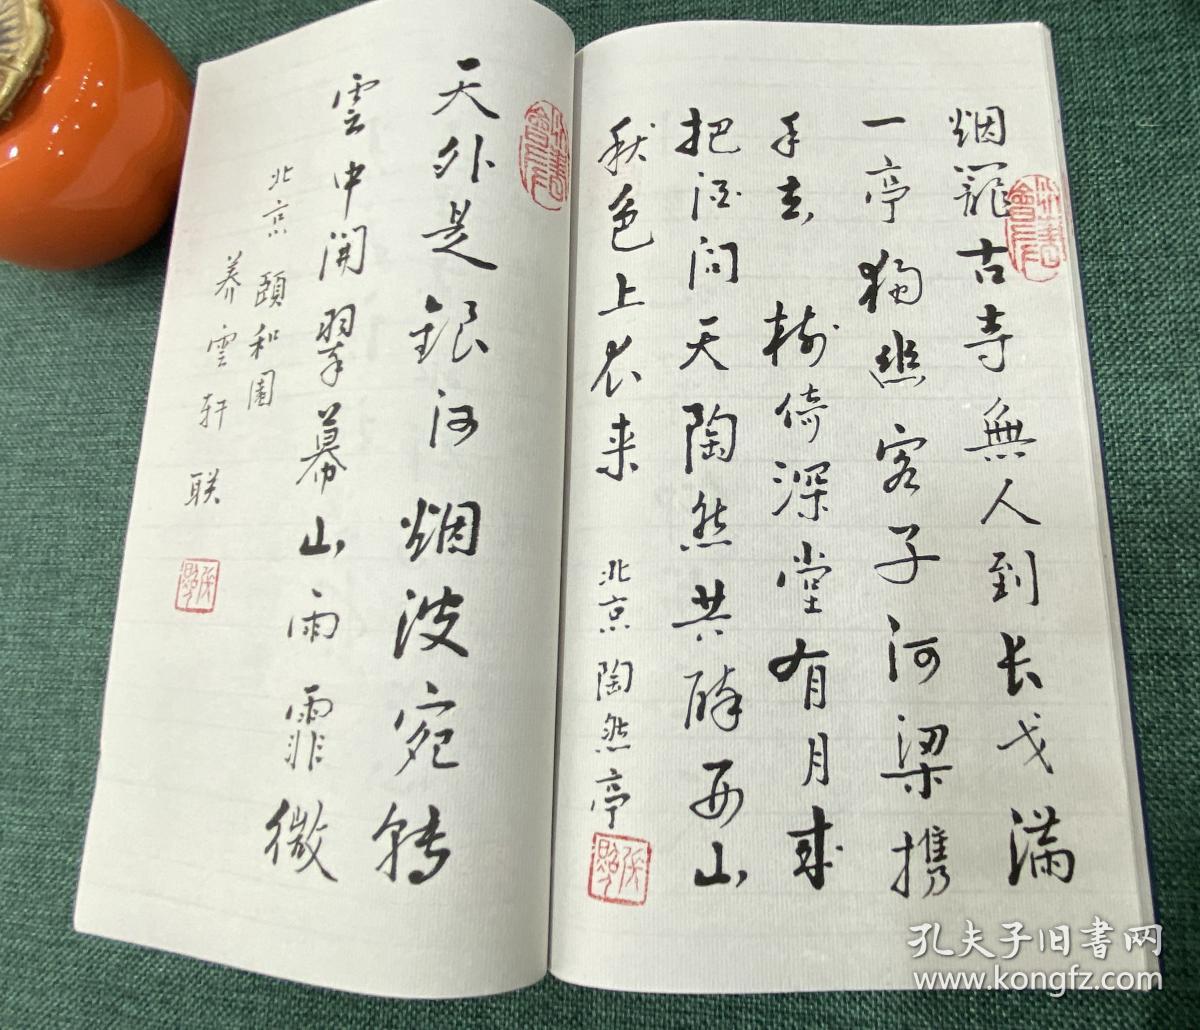 烟籠古寺無人到长戈满
一亭獨悲客子河梁携
手去 樹倚深堂有月来
把酒问天陶然共醉西山
秋色上衣来 北京陶然亭
天外是银河烟波宛转
雲中開翠幕山雨霏微
北京颐和園
养雲轩联
孔夫子旧书网
www.kongfz.com